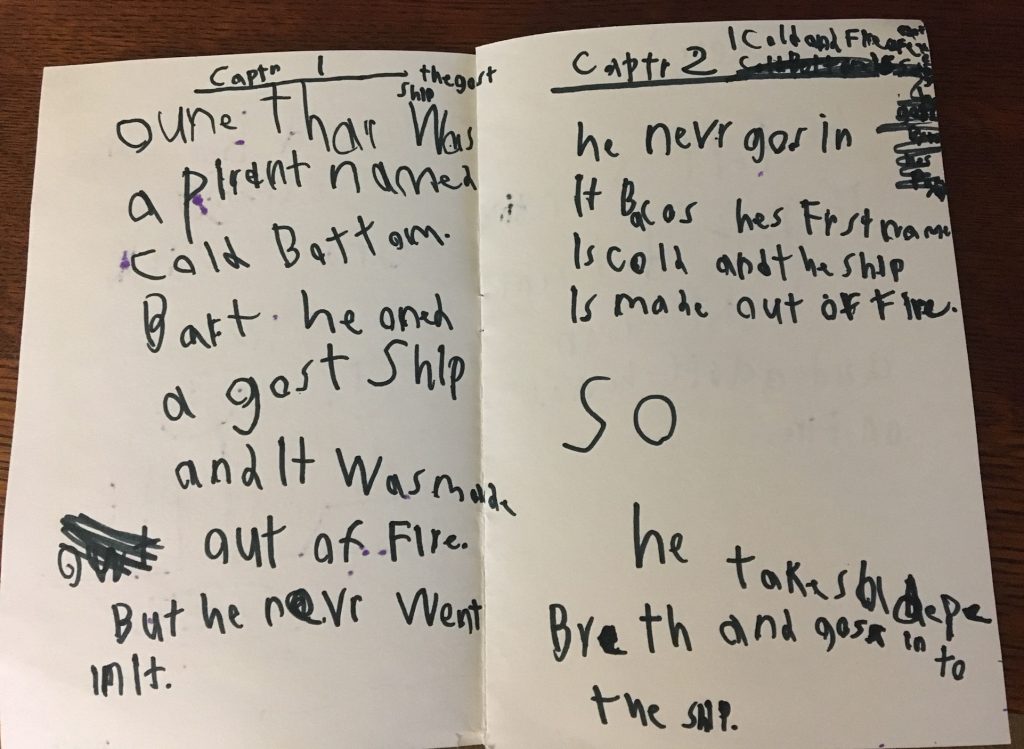 Captr 1 the gost
ship
oune thar was
a pirant named
Cold Battom.
Batt he oned
a gost ship
and It was made
out of Fire.
But he nevr went
in It.
Captr 2 Cold and Fire
he nevr gos in
It Bacos hes First name
Is cold and the ship
Is made out of Fire.
SO
he takes a depe
Breth and gos in to
the ship.